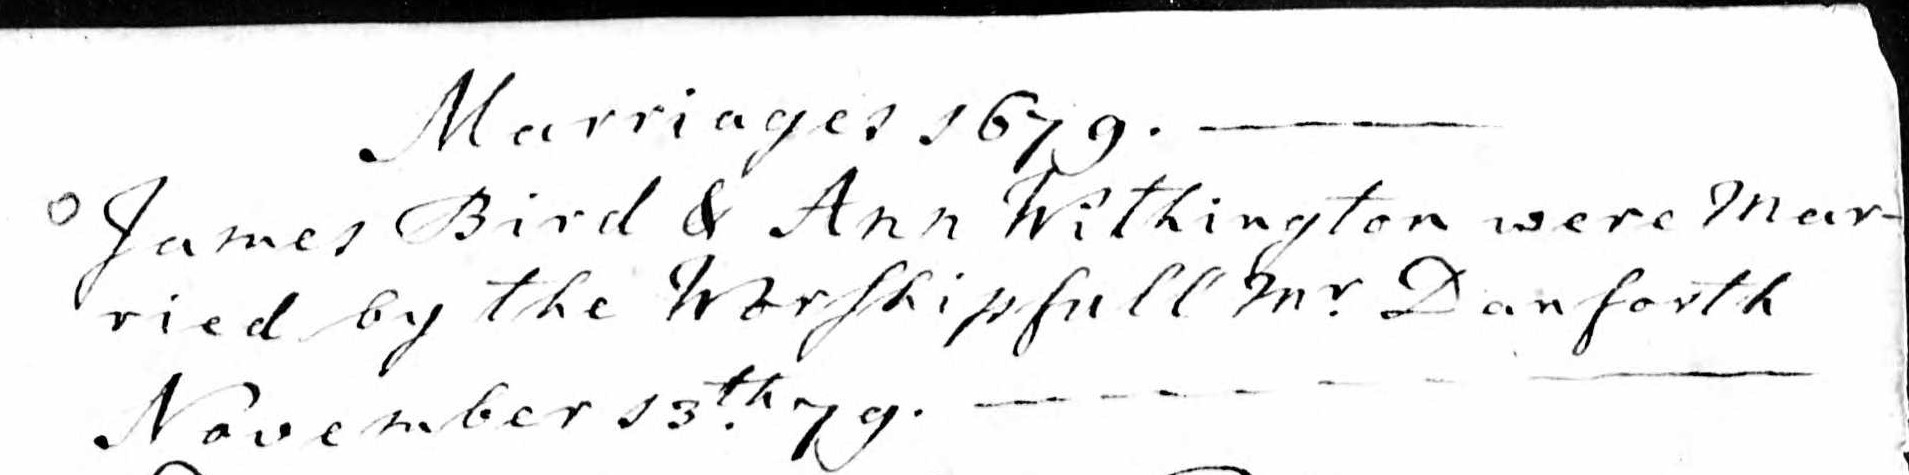 Marriages 1679.
James Bird & Ann Withington were Mar-
ried by the Worshipfull Mr. Danforth
November 13th. 79.